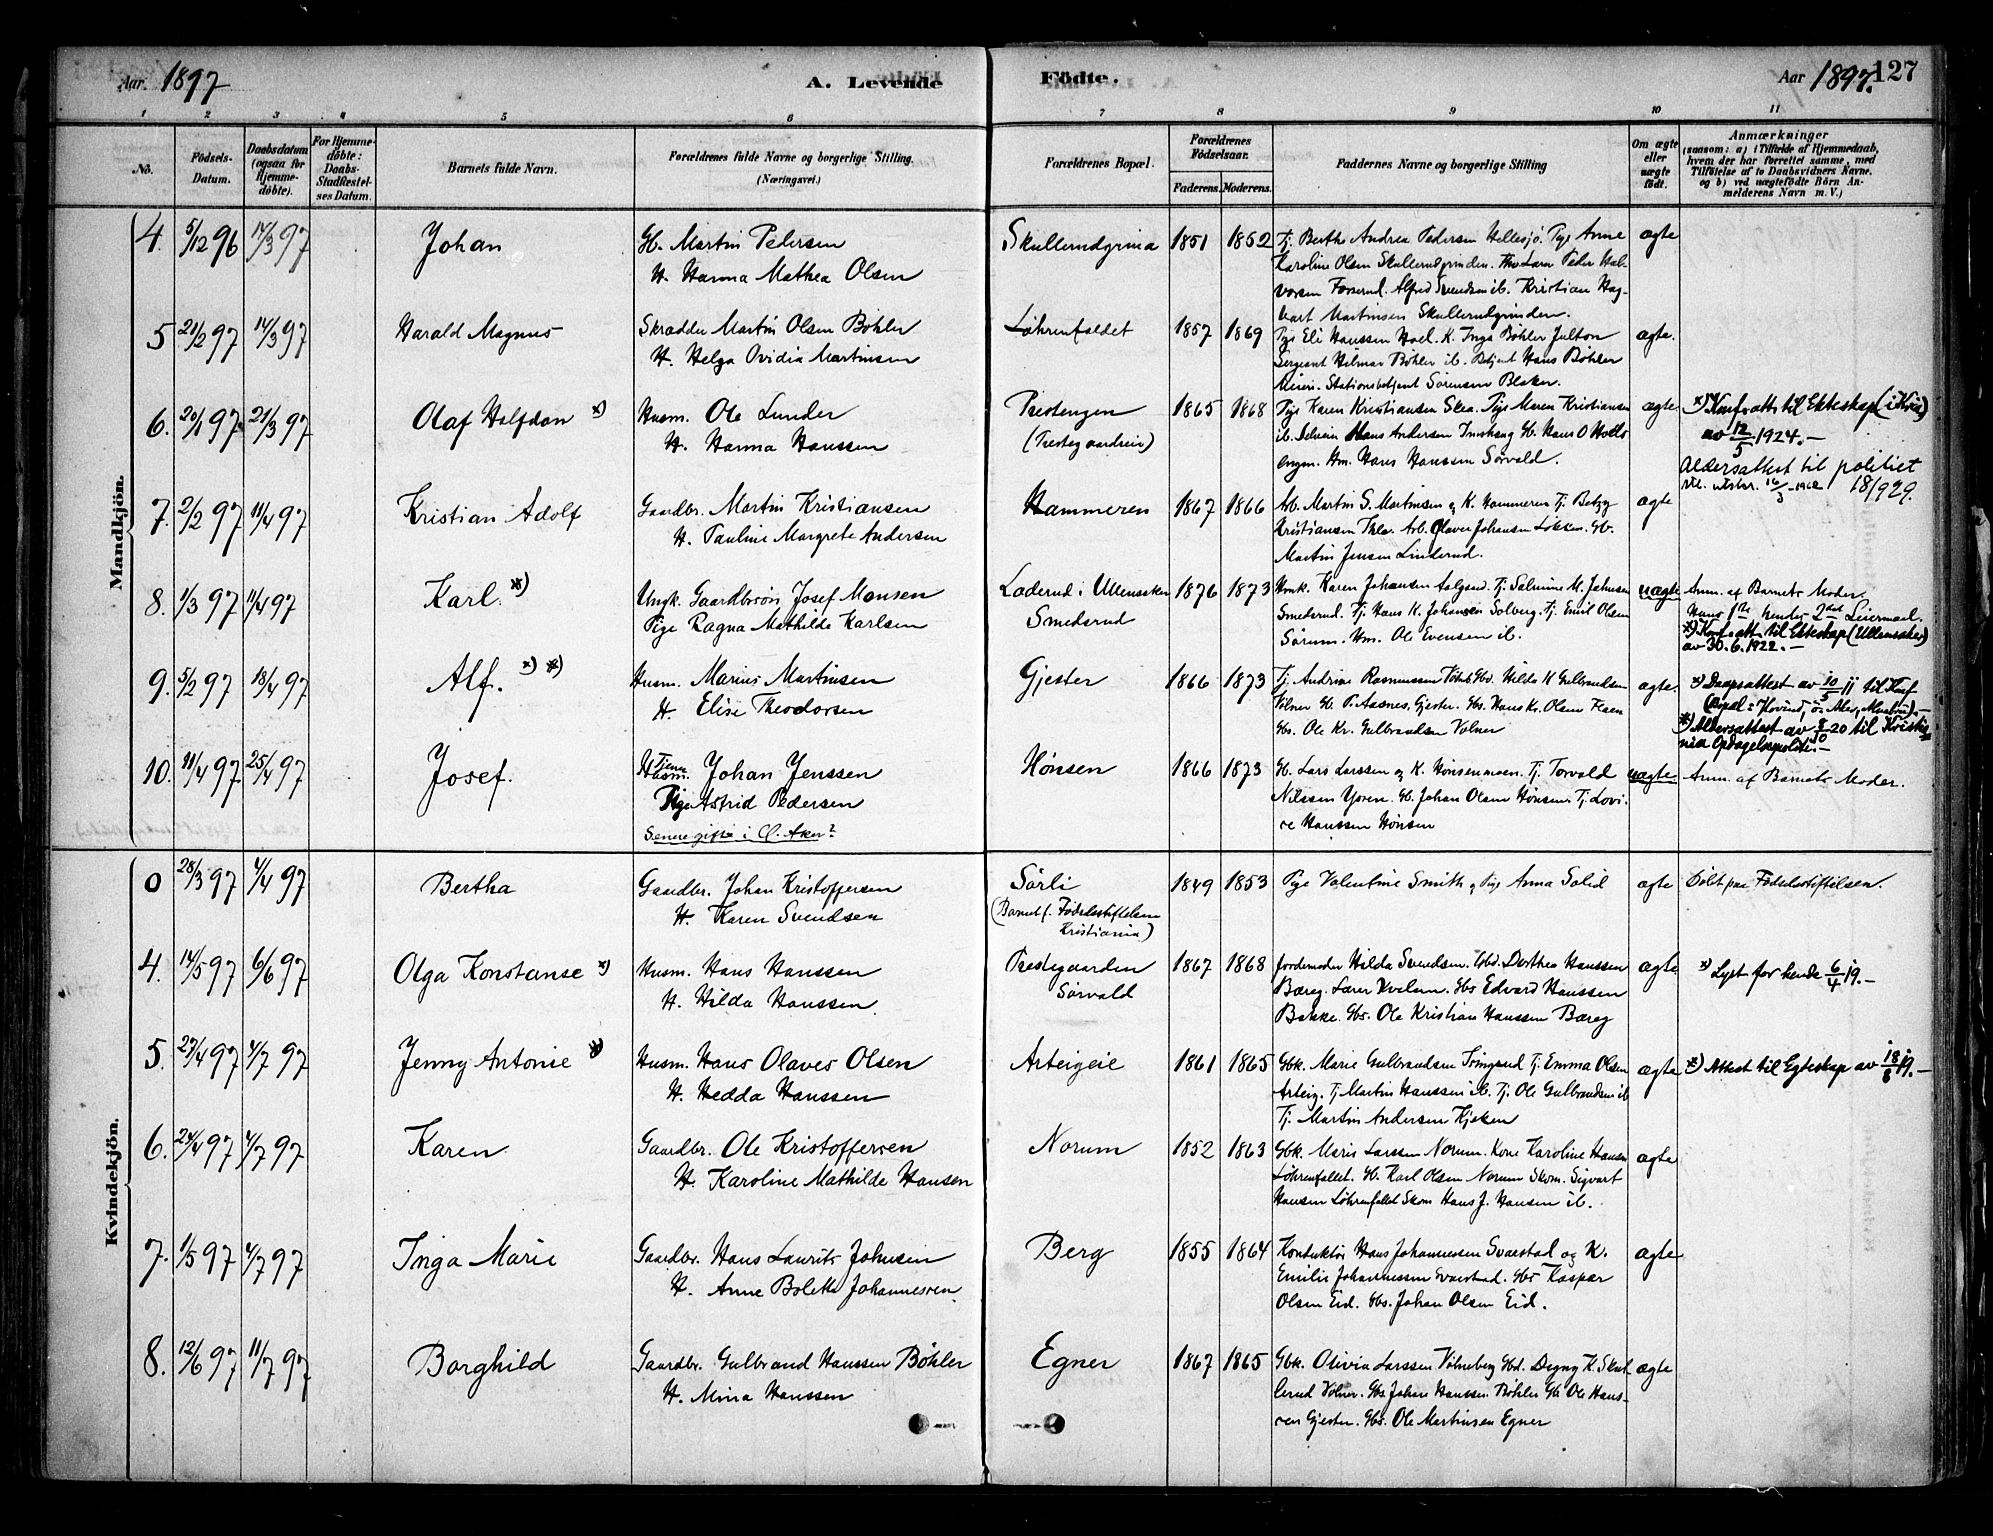 Aar. 1897 A. Levende Födte. Aar 1897. 127
1 2 3 4 5 6 7 8 9 10 11
No.
Födsels-Datum.
Daabsdatum (ogsaa for Hjemmedöbte).
For Hjemmedöbte: Daabs-Stadfestelses Datum.
Barnets fulde Navn.
Forældrenes fulde Navne og borgerlige Stilling. (Næringsvei.)
Forældrenes Bopæl.
Forældrenes Födselsaar.
Faderens. Moderens.
Faddernes Navne og borgerlige Stilling
Om ægte eller uægte födt.
Anmærkninger
(saasom: a) i Tilfælde af Hjemmedaab, hvem der har forrettet samme, med Tilföielse af to Daabsvidners Navne. og b) ved uægtefödte Börn Anmelderens Navn m. V.)
Mandkjön.
4. 5/12 96 14/3 97 Johan
Gb. Martin Pedersen
H. Hanna Mathea Olsen
Skullerudgrina 1851 1852
Tj. Berthe Andrea Pedersen Hellesjö. Pige Anne
Karoline Olsen Skullerudgrinden. Peder Hal-
vorsen Fosserud. Alfred Svendsen ib. Kristian Hag-
bart Martinsen Skullerudgrinden.
ægte
5 21/2 97 14/3 97 Harald Magnus
Skrædder Martin Olsen Böhler
H. Helga Ovidia Martinsen
Löhrenfaldet 1857 1869
Pige Eli Hanssen Hoel. K. Inga Böhler Julton
Sergeant Hilmar Böhler ib. Betjent Hans Böhler
Stationsbetjent Sörensen Blaker.
ægte.
6. 20/1 97 21/3 97 Olaf Halfdan x)
Husm. Ole Lunder
H. Hanna Hanssen
Prestengen
(Prestegaardseie)
1865 1868
Pige Karen Kristiansen Skea. Pige Maren Kristiansen
ib. Hans Andersen Gb. Hans O
engen. Hm. Hans Hanssen Sörvald.
ægte
x) Konf.att. til Ekteskap (i Kria)
av 12/5 1924. –
Aldersattest til politiet
utstr. 16/3 – 1962 18/929.
7. 2/2 97 11/4 97 Kristian Adolf
Gaardbr. Martin Kristiansen
H. Pauline Margrete Andersen
Hammeren 1867 1866
Arb. Martin S. Martinsen og K. Hammeren Tj. Betzy
Kristiansen Arb. Olaves Johansen Lökken. Gb.
Martin Jensen Linderud.
ægte
8. 1/3 97 11/4 97 Karl. x)
Ungk. Gaardbrsön Josef Monsen
Pige Ragna Mathilde Karlsen
Loderud i Ullensaker
Smedsrud
1876 1873
Karen Johansen Tj. Salmine M. Johnsen
Smedsrud. Tj. Hans K. Johansen Solberg. Tj. Emil Olsen
Sörum. Hm. Ole Evensen ib.
uægte
Anm. af Barnets Moder.
Hans 1ste hendes 2det Leiermaal.
x) Konf.att. til Ekteskap (Ullensaker)
av 30. 6. 1922. –
9. 5/2 97 18/4 97 Alf. x) x)
Husm. Marius Martinsen
H. Elise Theodorsen
Gjester 1866 1873
Tj. Andrine Rasmussen Hilda K Gulbrandsen
Volner Gb. P. Aasnes, Gjester. Gbs. Hans Kr. Olsen
Gbs. Ole Kr. Gulbrandsen Volner
ægte.
x) Daapsattest av 10/5 11 til Konf
x) Aldersattest av 8/10 20 til Kristia-
nia Opdagelsespoliti. –
10. 11/4 97 25/4 97 Josef.
Tjener Husm. Johan Jenssen
Pige Astrid Pedersen
Senere gifte i Ö. Aker?
Hönsen 1866 1873
Gb. Lars Larssen og K. Hönsenmoen. Tj. Torvald
Nilssen Yssen. Gb. Johan Olsen Hönsen Tj. Lovi-
se Hanssen Hönsen
uægte
Anm. af Barnets Moder.
Kvindekjön.
0 28/3 97 4/4 97 Bertha
Gaardbr. Johan Kristoffersen
H. Karen Svendsen
Sörli
(Barnet f. Födselsstiftelsen
Kristiania)
1849 1853
Pige Valentine Smith og Pige Anna Solid
ægte
Döbt paa Födselsstiftelsen.
4. 14/5 97 6/6 97 Olga Konstanse x)
Husm. Hans Hanssen
H. Hilda Hanssen.
Prestegaarden
Sörvald
1867 1868
Jordemoder Hilda Svendsen. Gbd. Dorthea Hanssen
Bæreg. Lærer Gbs Edvard Hanssen
Bakke. Gbs. Ole Kristian Hanssen Bæreg
ægte
x) Lyst for hende 6/4 19. –
5. 27/4 97 4/7 97 Jenny Antonie x)
Husm. Hans Olaves Olsen
H. Hedda Hanssen
Arteigeie 1861 1865
Gbk. Marie Gulbrandsen Tj. Emma Olsen
Arteig. Tj. Martin Hanssen ib. Tj. Ole Gulbrandsen ib
Tj. Martin Andersen Kjoken
ægte
x) Attest til Egteskap av 18/8 19. –
6. 24/4 97 4/7 97 Karen.
Gaardbr. Ole Kristoffersen
H. Karoline Mathilde Hansen
Norum 1852 1863
Gbk. Maris Larssen Norum. Kone Karoline Hansen
Löhrenfallet. Gb. Karl Olsen Norum Skom. Sigvart
Hansen Löhrenfallet Skom Hans J. Hansen ib.
ægte
7. 1/5 97 4/7 97 Inga Marie
Gaardbr. Hans Laurits Johnsen
H. Anne Bolette Johannessen.
Berg 1855 1864
Konduktör Hans Johannessen Svarstad og K.
Emilie Johannessen Svarstad. Gbs Kaspar
Olsen Eid. Gbs. Johan Olsen Eid.
ægte
8. 12/6 97 11/7 97 Borghild
Gaardbr. Gulbrand Hanssen Böhler
H. Mina Hanssen
Egner 1867 1865
Gbk. Olivia Larssen Gbd. Dagny K. Skul-
lerud Volner. Gbs Johan Hanssen Böhler Gb Ole Hans-
sen Gjester. Gbs. Ole Martinsen Egner
ægte